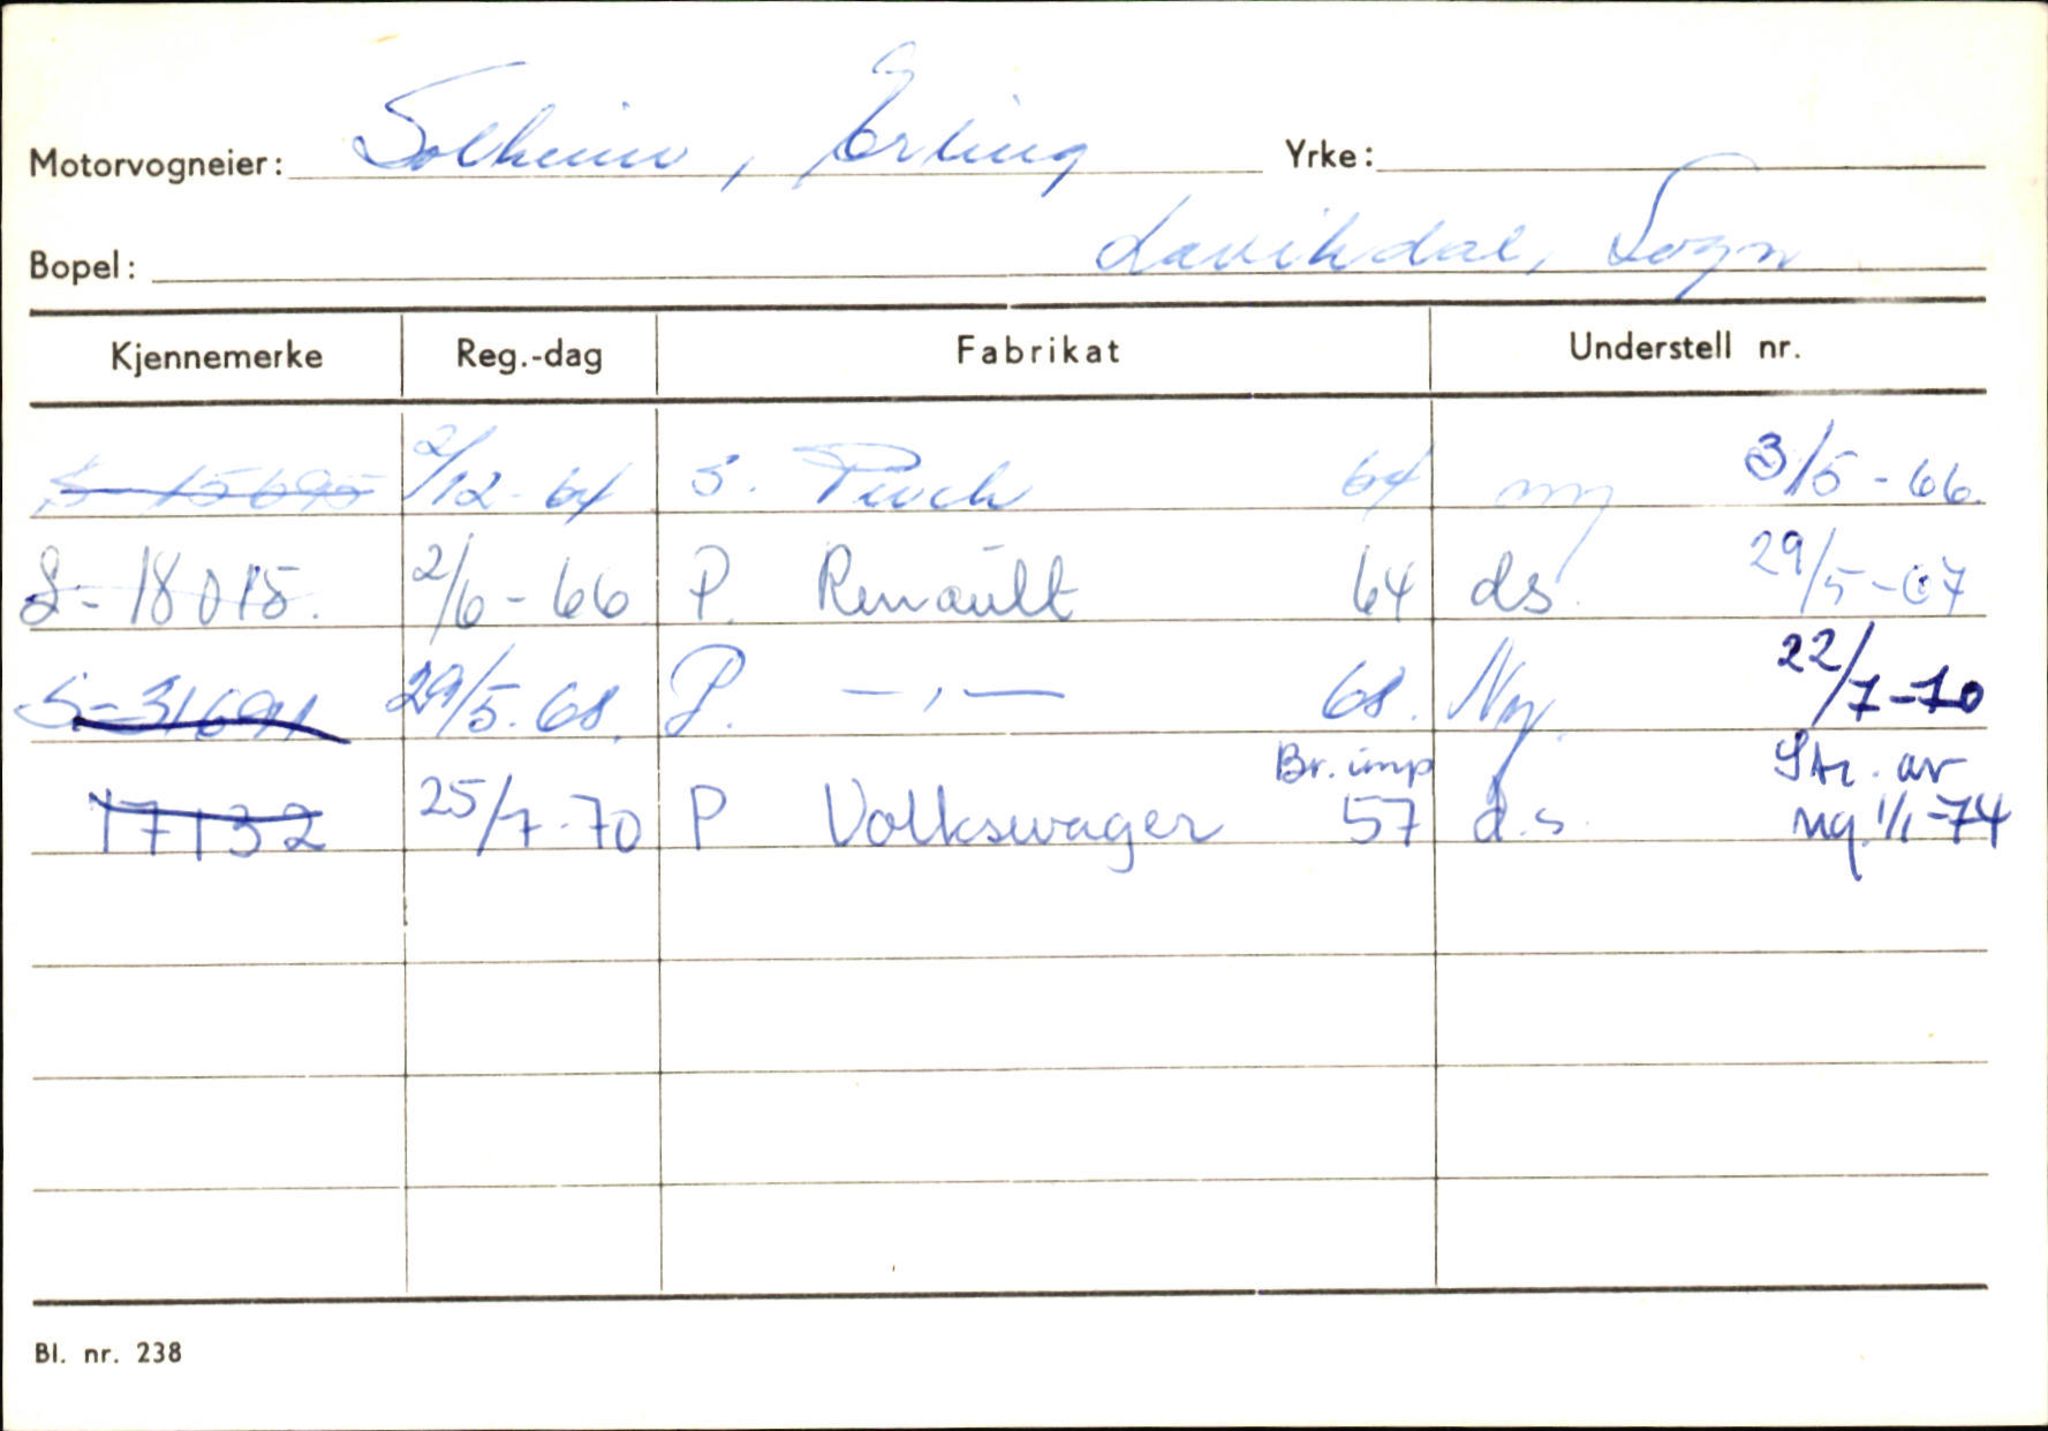 Motorvogneier: Solheim, Erling Yrke:
Bopel: Lavikdal, Sogn
Kjennemerke Reg.-dag Fabrikat Understell nr.
S-15695 2/12-64 S. Puch 64 ny 3/5-66
S-18015. 2/6-66 P. Renault 64 ds. 29/5-67
S-31691 29/5.68. P. -,- 68. Ny. 22/7-70
Br. imp Str. av
17132 25/7-70 P Volkswagen 57 d.s. ng. 1/1-74
Bl. nr. 238